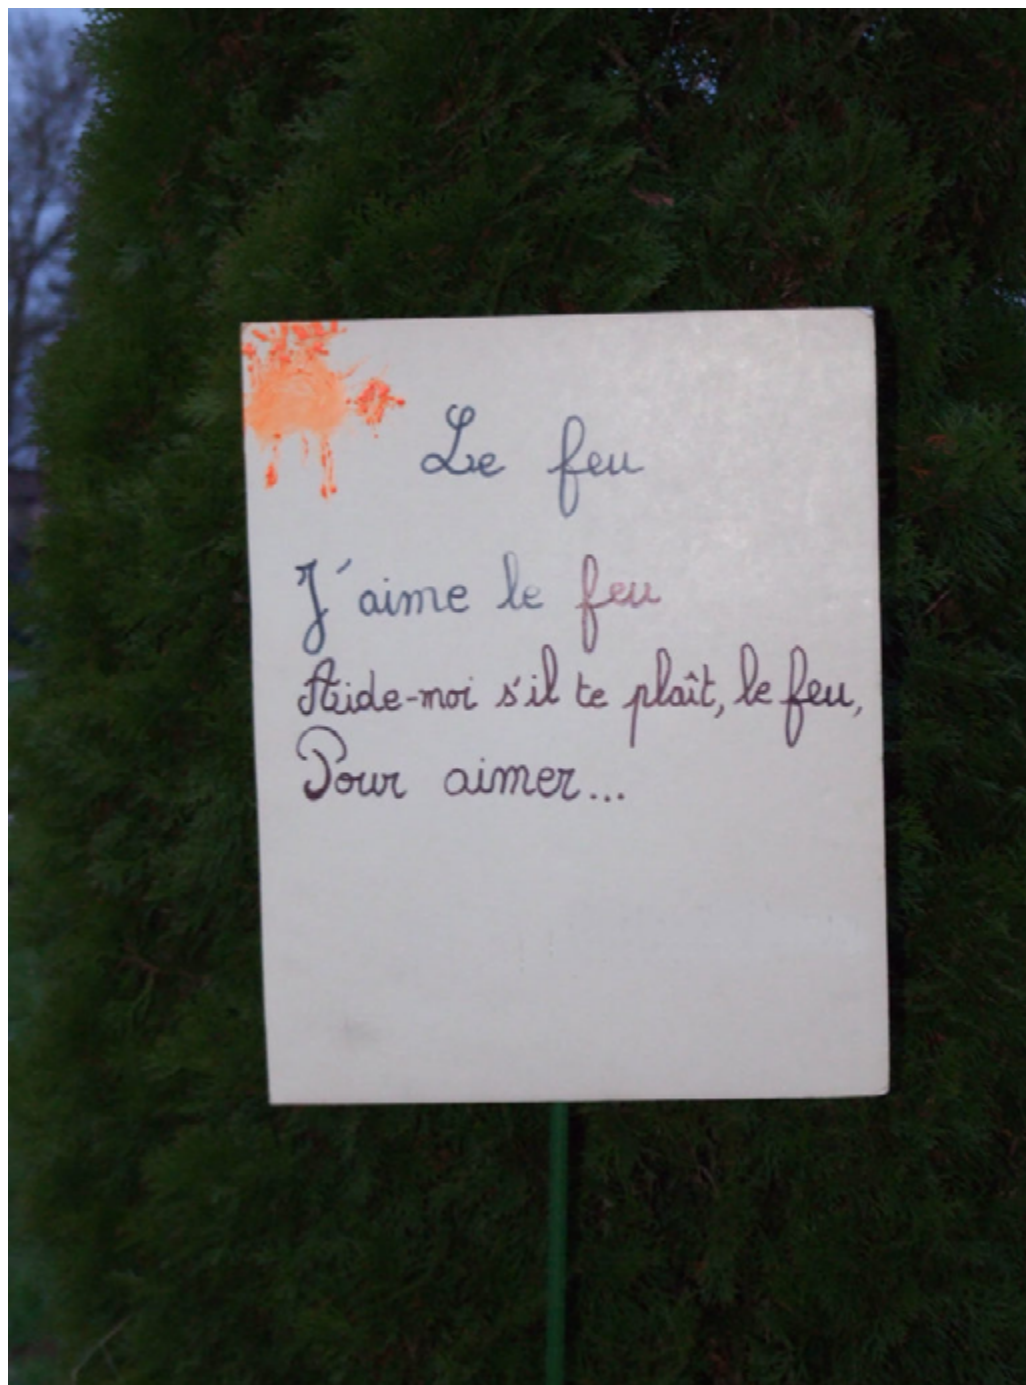 Le feu
J'aime le feu
Aide-moi s'il te plaît, le feu,
Pour aimer...